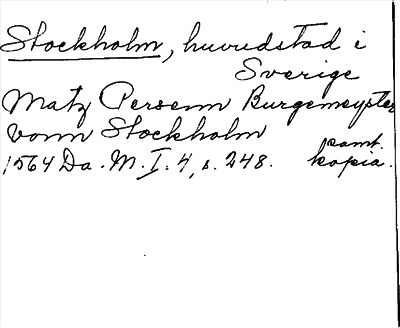 Stockholm, huvudstad i
Sverige
Matz Persenn Burgemeyster
vonn Stockholm
samt.
1564 Da. M. I. 4, s. 248. kopia.